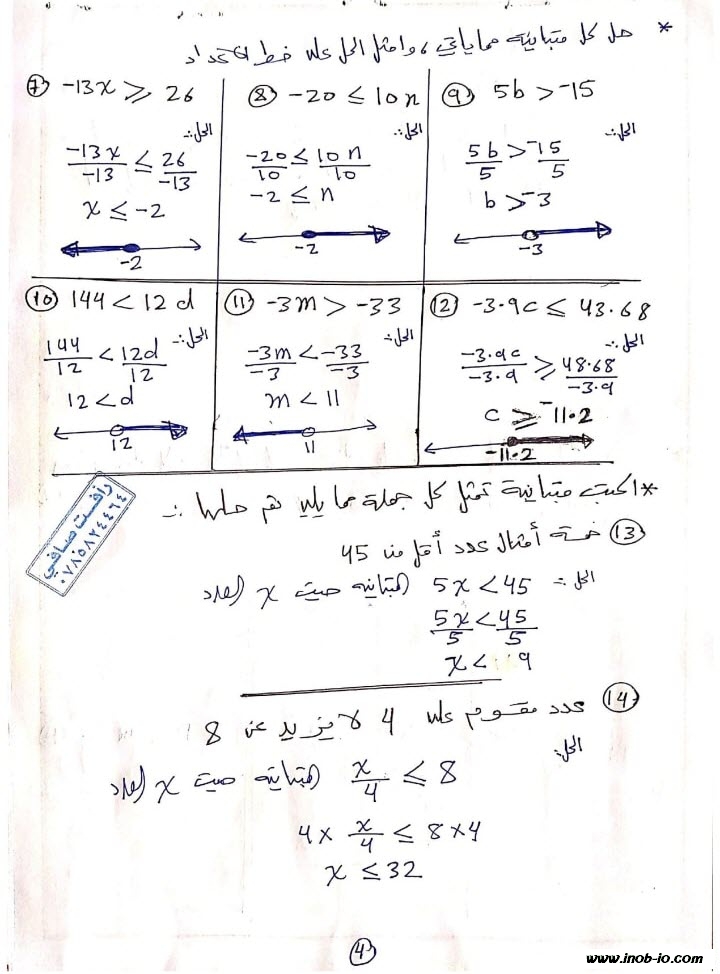 * حل كل متباينة مما يأتي، وامثل الحل على خط الأعداد
⑦ -13x ≥ 26
الحل :-
-13x/-13 ≤ 26/-13
x ≤ -2
-2
⑧ -20 ≤ 10n
الحل :-
-20/10 ≤ 10n/10
-2 ≤ n
-2
⑨ 5b > -15
الحل :-
5b/5 > -15/5
b > -3
-3
⑩ 144 < 12d
الحل :-
144/12 < 12d/12
12 < d
12
⑪ -3m > -33
الحل :-
-3m/-3 < -33/-3
m < 11
11
⑫ -3.9c ≤ 43.68
الحل :-
-3.9c/-3.9 ≥ 48.68/-3.9
c ≥ -11.2
-11.2
* اكتب متباينة تمثل كل جملة مما يلي ثم حلها :-
رأفت صافي
٠٧٨٥٨٢٤٤٦٤
⑬ خمسة أمثال عدد أقل من 45
الحل :- 5x < 45 المتباينة حيث x العدد
5x/5 < 45/5
x < 9
⑭ عدد مقسوم على 4 لا يزيد عن 8
الحل :-
x/4 ≤ 8 المتباينة حيث x العدد
4 × x/4 ≤ 8 × 4
x ≤ 32
④
www.inob-io.com